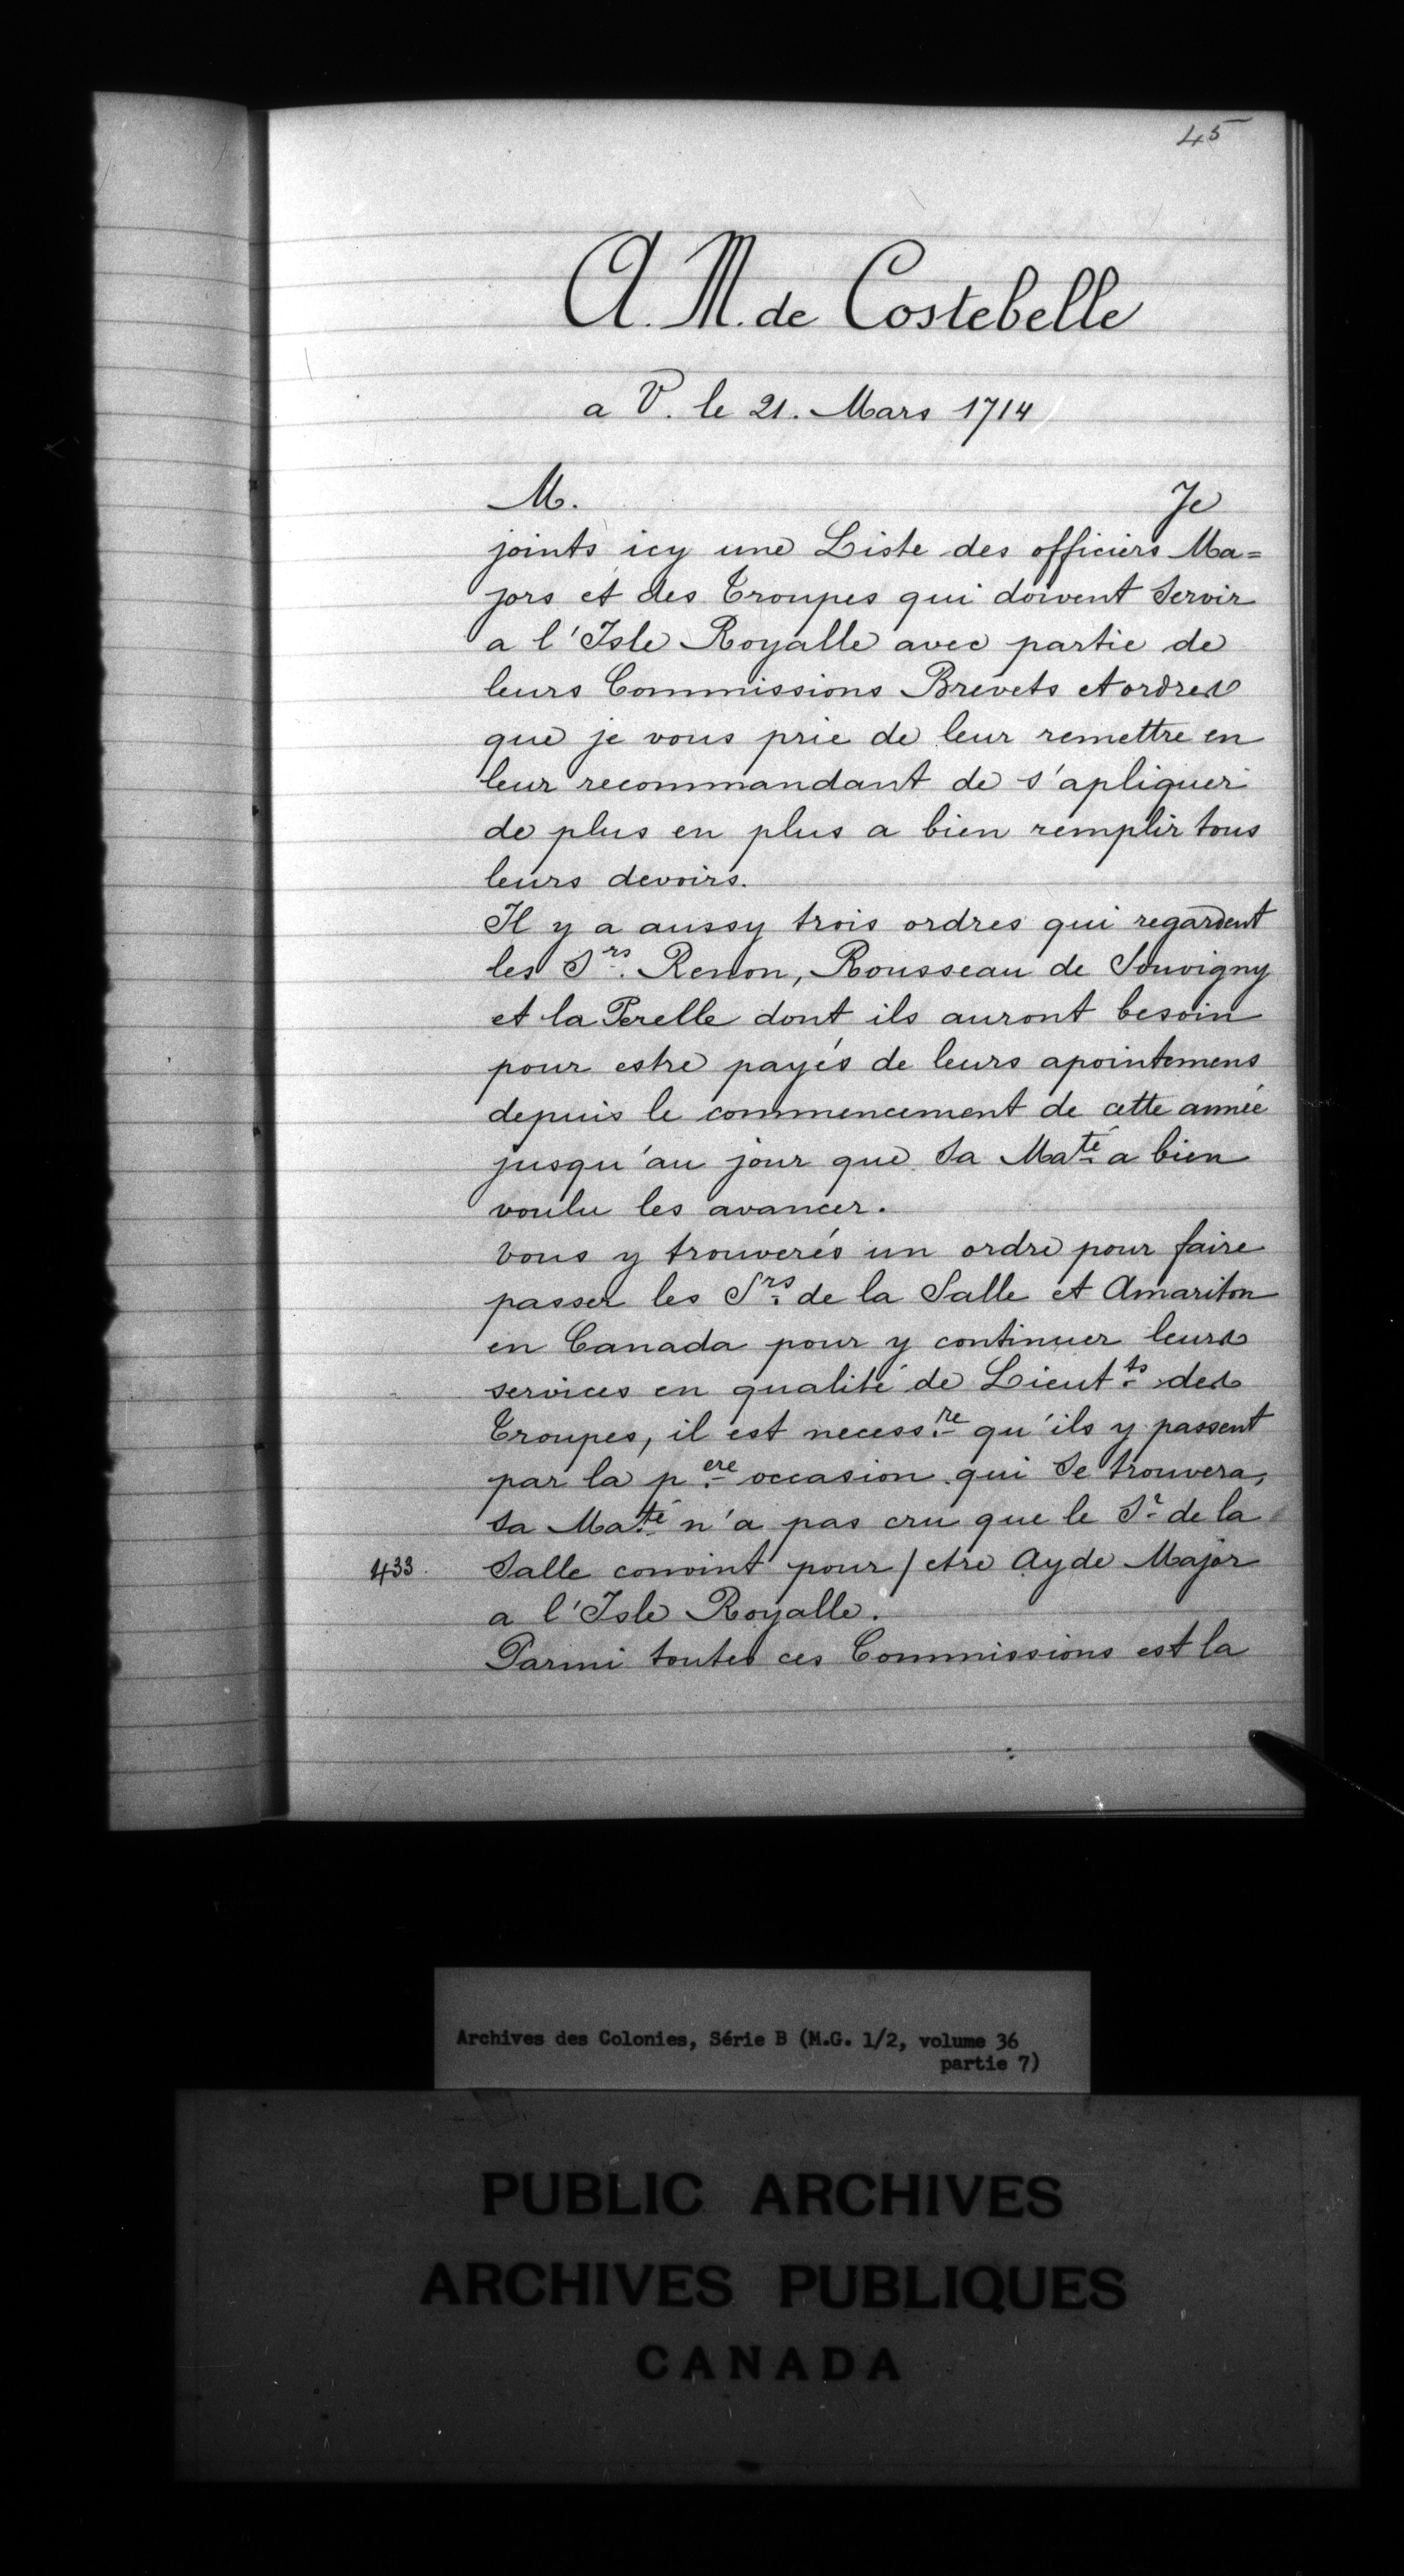 45
A. M. de Costebelle
a V. le 21. Mars 1714
M. Je
joints icy une Liste des officiers Ma=
jors et des Troupes qui doivent Servir
a l'Isle Royalle avec partie de
leurs Commissions Brevets et ordres
que je vous prie de leur remettre en
leur recommandant de s'apliquer
de plus en plus a bien remplir tous
leurs devoirs.
Il y a aussy trois ordres qui regardent
les Srs. Renon, Rousseau de Souvigny
et la Perelle dont ils auront besoin
pour estre payés de leurs apointemens
depuis le commencement de cette année
jusqu'au jour que Sa Maté a bien
voulu les avancer.
Vous y trouverés un ordre pour faire
passer les Srs. de la Salle et Amariton
en Canada pour y continuer leurs
services en qualité de Lieut.ts des
Troupes, il est necess.re qu'ils y passent
par la p.ere occasion qui Se trouvera,
Sa Ma.té n'a pas cru que le Sr de la
433. Salle convint pour / etre Ayde Major
a l'Isle Royalle.
Parmi toutes ces Commissions est la
Archives des Colonies, Série B (M.G. 1/2, volume 36
partie 7)
PUBLIC ARCHIVES
ARCHIVES PUBLIQUES
CANADA